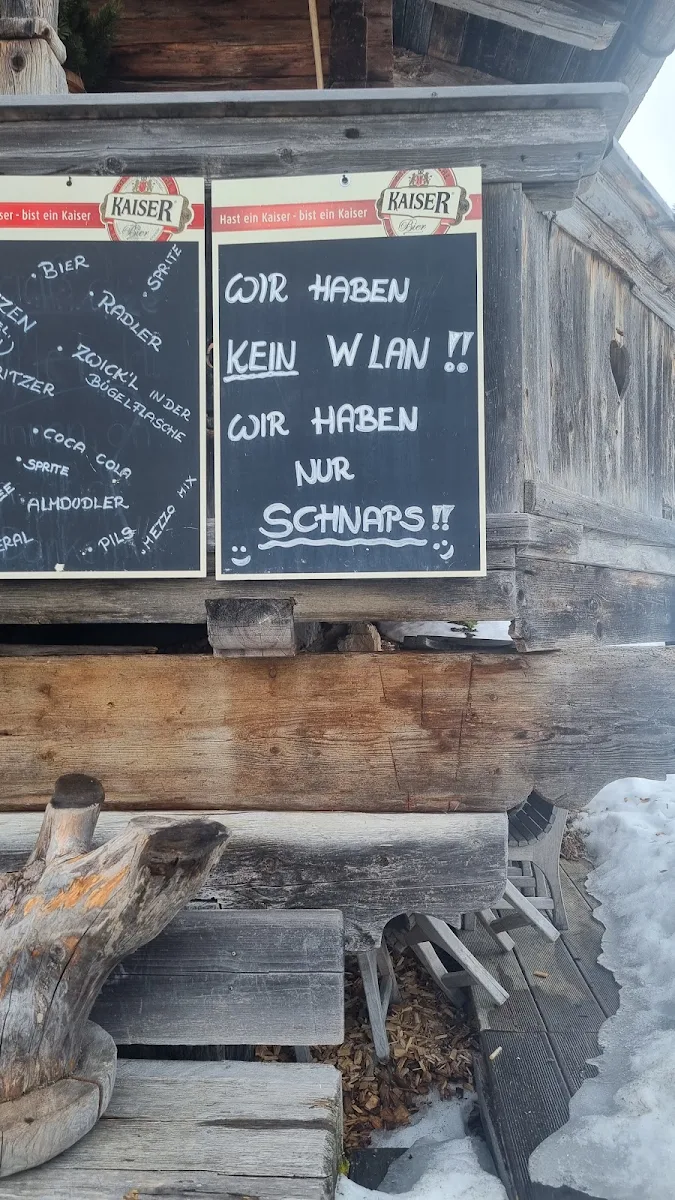 ser - bist ein Kaiser
KAISER
Bier
• BIER
• SPRITE
• RADLER
ZEN
RITZER
• ZWICK'L IN DER
BÜGELFLASCHE
• COCA COLA
• SPRITE
• ALMDUDLER
ERAL
• PILS
• MEZZO MIX
Hast ein Kaiser - bist ein Kaiser
KAISER
Bier
WIR HABEN
KEIN WLAN !!
WIR HABEN
NUR
SCHNAPS!!